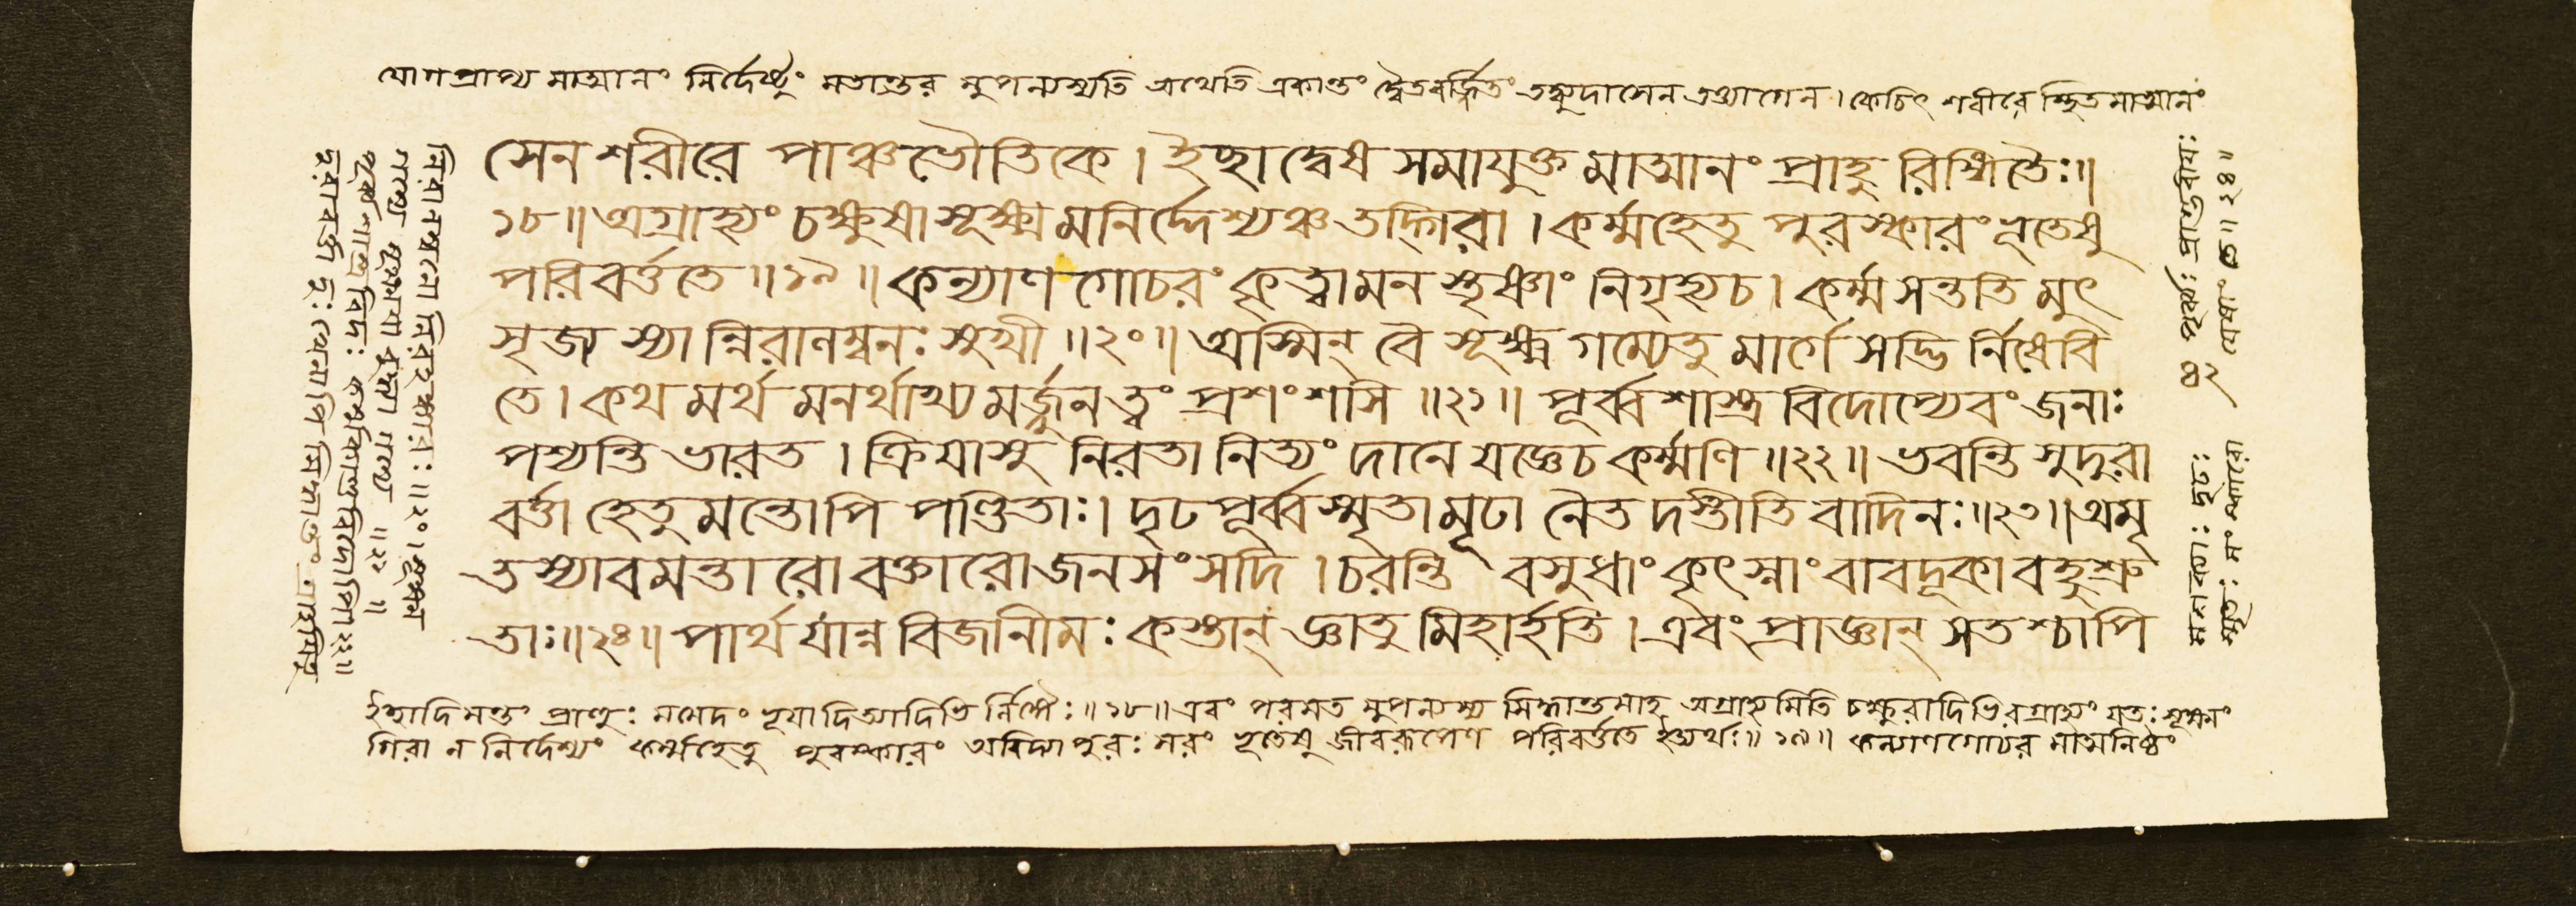 যোগপ্রাপ্য মাত্মানং নির্দেষ্টুং মতান্তর মুপন্যস্যতি অথেতি একান্তং দ্বৈতবর্জ্জিতং তদ্ব্যুদাসেন তত্ত্যাগেন। কেচিৎ শরীরে স্থিতমাত্মানং
সেন শরীরে পাঞ্চভৌতিকে। ইচ্ছা দ্বেষ সমাযুক্ত মাত্মানং প্রাহু রিঙ্গিতৈঃ॥
১৮॥ অগ্রাহ্যং চক্ষুষা সূক্ষ্ম মনির্দ্দেশ্যঞ্চ তদ্গিরা। কর্ম্মহেতু পুরস্কারং ভূতেষু
পরিবর্ত্ততে॥১৯॥ কল্যাণ গোচরং কৃত্বা মন স্তৃষ্ণাং নিগৃহ্য চ। কর্ম্ম সন্ততি মুৎ
সৃজ্য স্যা ন্নিরালম্বনঃ সুখী॥২০॥ অস্মিন্ বৈ সূক্ষ্ম গম্যেতু মার্গে সদ্ভি র্নিষেবি
তে। কথ মর্থ মনর্থাখ্য মর্জ্জুন ত্বং প্রশংশসি॥২১॥ পূর্ব্ব শাস্ত্র বিদোপ্যেবং জনাঃ
পশ্যন্তি ভারত। ক্রিযাসু নিরতা নিত্যং দানে যজ্ঞেচ কর্ম্মণি॥২২॥ ভবন্তি সুদুরা
বর্ত্তা হেতুমন্তোপি পণ্ডিতাঃ। দৃঢ পূর্ব্ব স্মৃতা মূঢা নৈত দস্তীতি বাদিনঃ॥২৩॥ অমৃ
তস্যাবমন্তারো বক্তারো জনসংসদি। চরন্তি বসুধাং কৃৎস্নাং বাবদূকা বহুশ্রু
তাঃ॥২৪॥ পার্থ যান্ন বিজানীমঃ কস্তান্ জ্ঞাতু মিহার্হতি। এবং প্রাজ্ঞান্ সতশ্চাপি
ইচ্ছাদিমন্তং প্রাহুঃ ॥১৮॥ এবং পরমত মুপন্যস্য সিদ্ধান্তমাহ অগ্রাহ্যমিতি চক্ষুরাদিভিরগ্রাহ্যং যতঃ সূক্ষ্মং
গিরা ন নির্দেশ্যং কর্ম্মহেতু পুরস্কারং অবিদ্যাপুরঃসরং ভূতেষু জীবরূপেণ পরিবর্ত্ততে ইত্যর্থঃ॥ ১৯॥ কল্যাণগোচর মাত্মনিষ্ঠং
নিরালম্বনো নিরহঙ্কারঃ॥২০॥ সূক্ষ্ম
গম্যে সূক্ষ্ময়া বুদ্ধ্যা গম্যে॥২১॥
পূর্ব্বশাস্ত্রবিদঃ কর্ম্মকাণ্ডবিদোপি॥২২॥